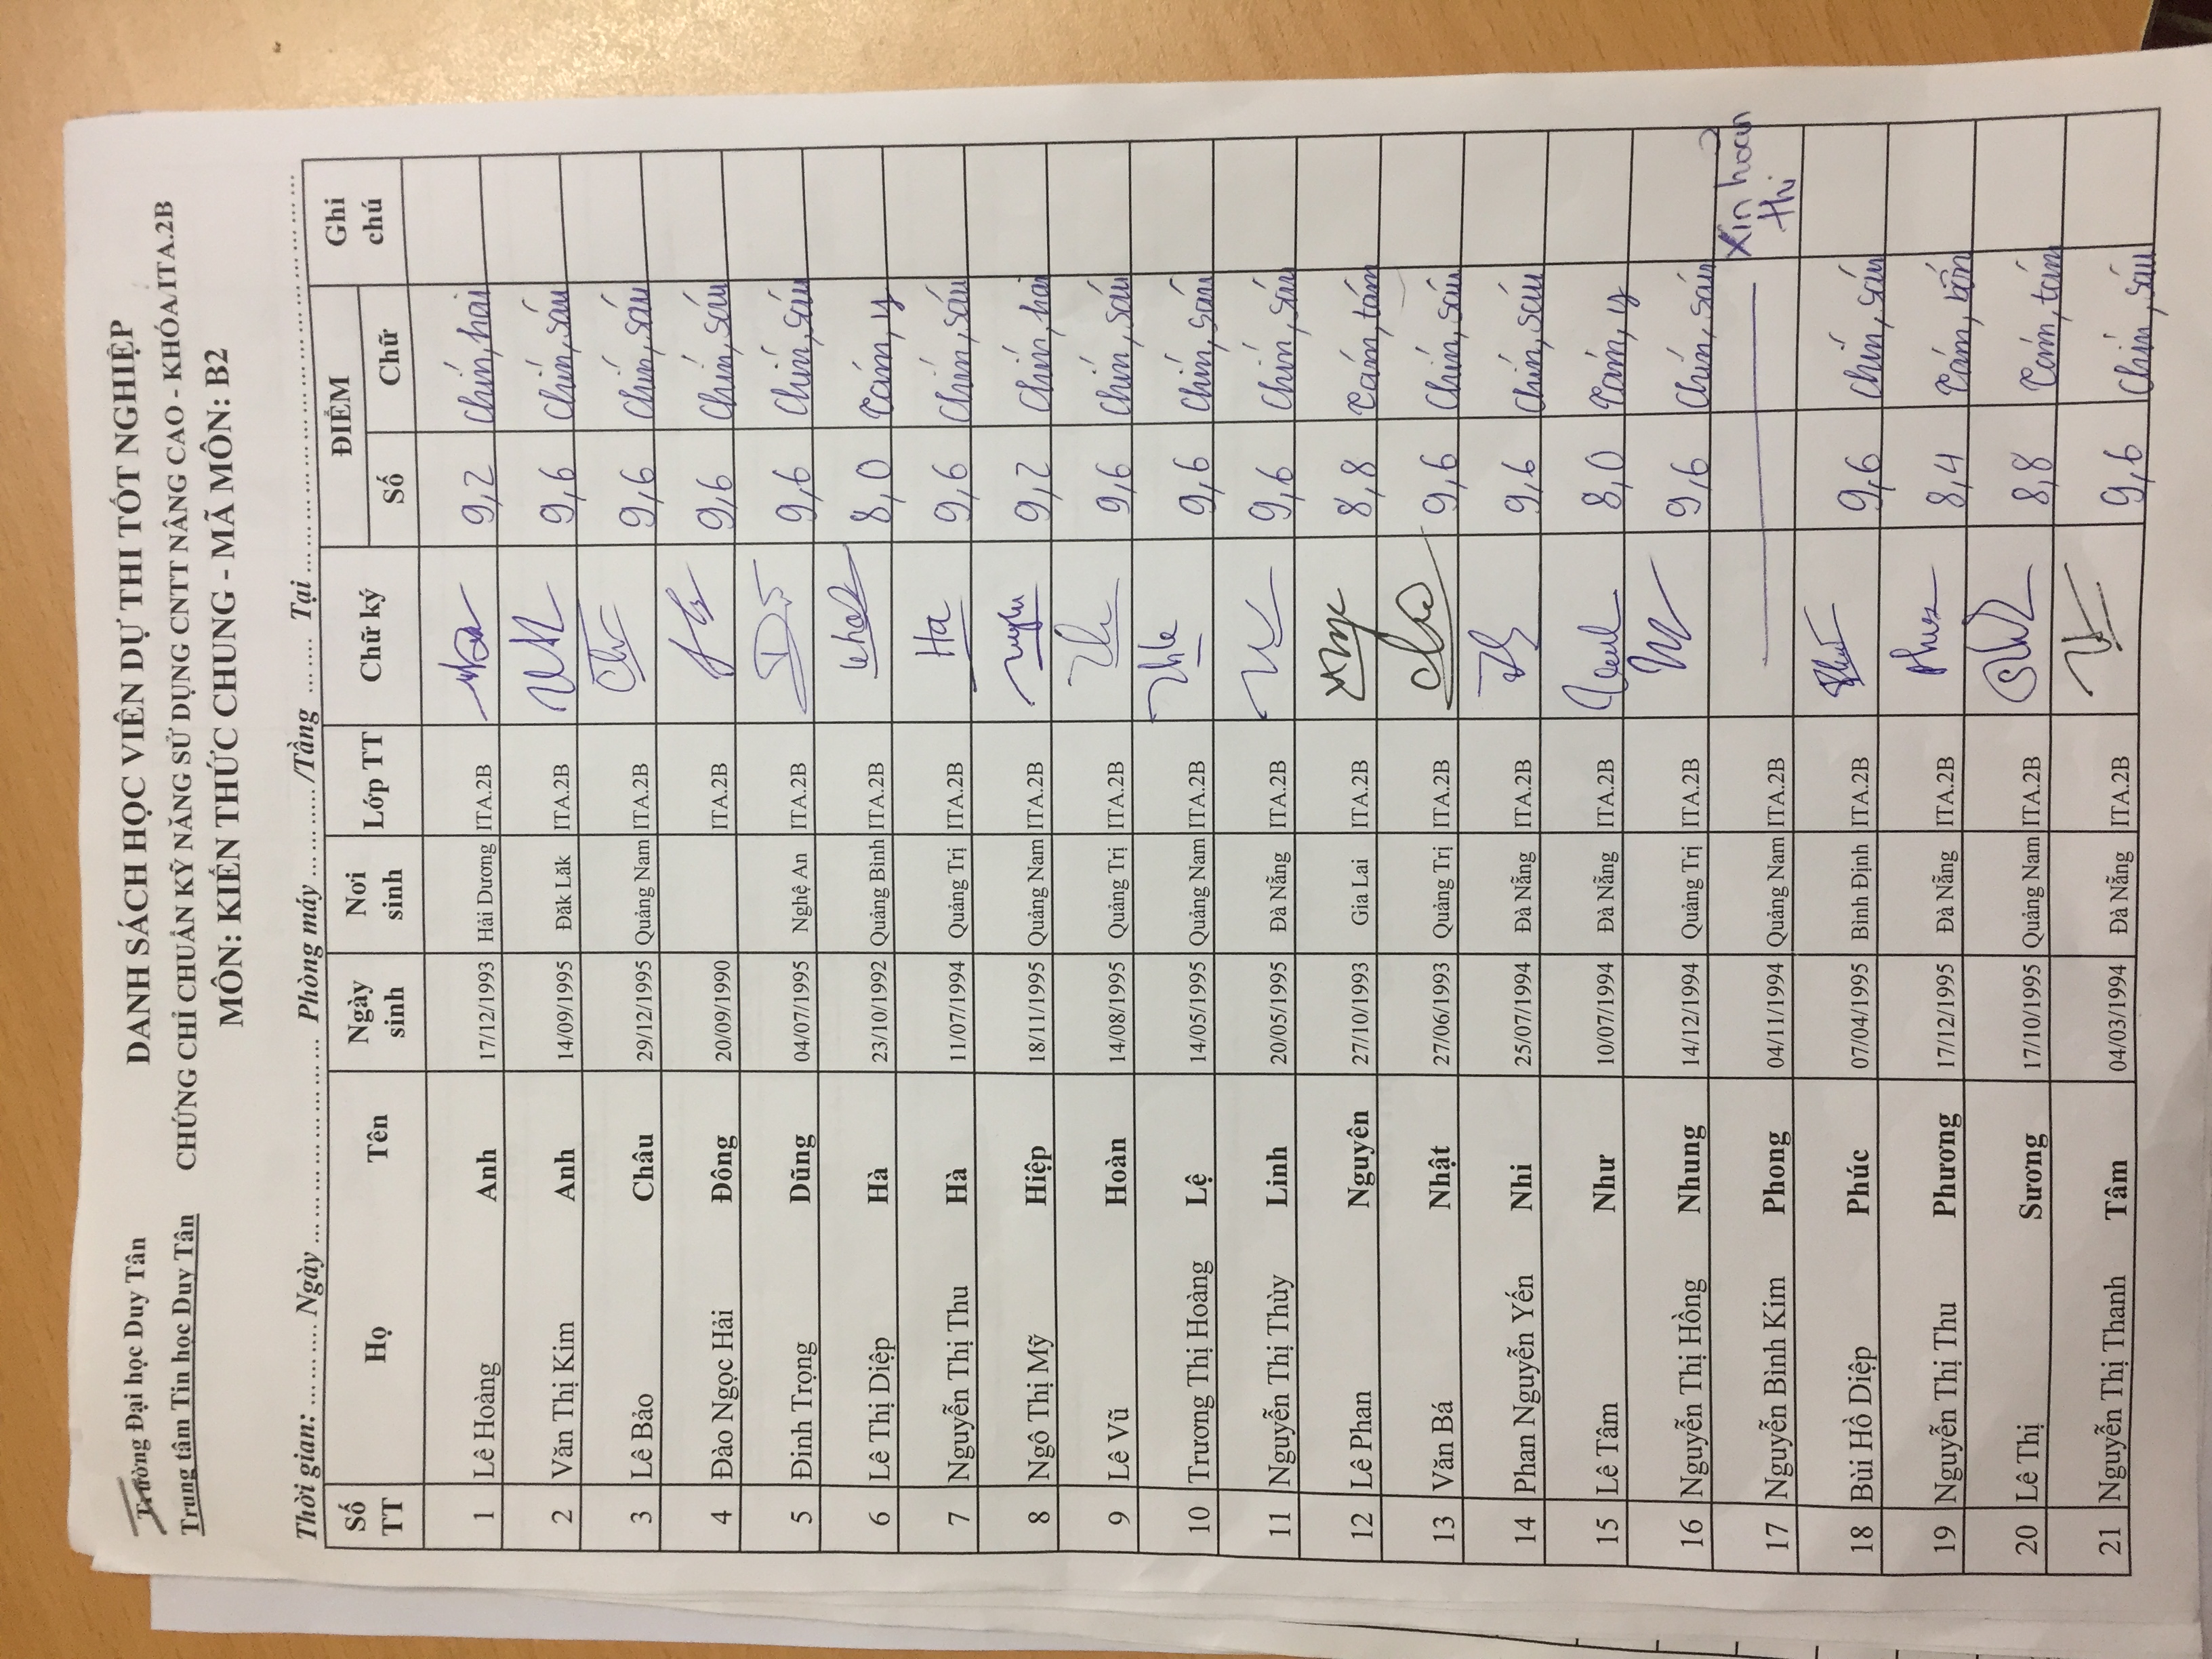 Trường Đại học Duy Tân
Trung tâm Tin học Duy Tân
DANH SÁCH HỌC VIÊN DỰ THI TỐT NGHIỆP
CHỨNG CHỈ CHUẨN KỸ NĂNG SỬ DỤNG CNTT NÂNG CAO - KHÓA ITA.2B
MÔN: KIẾN THỨC CHUNG - MÃ MÔN: B2
Thời gian: ......... Ngày ........................ Phòng máy ............/Tầng ........ Tại ................................................
Số TT Họ Tên Ngày sinh Nơi sinh Lớp TT Chữ ký ĐIỂM Ghi chú
Số Chữ
1 Lê Hoàng Anh 17/12/1993 Hải Dương ITA.2B 9,2 Chín, hai
2 Văn Thị Kim Anh 14/09/1995 Đăk Lăk ITA.2B 9,6 Chín, sáu
3 Lê Bảo Châu 29/12/1995 Quảng Nam ITA.2B 9,6 Chín, sáu
4 Đào Ngọc Hải Đông 20/09/1990 ITA.2B 9,6 Chín, sáu
5 Đinh Trọng Dũng 04/07/1995 Nghệ An ITA.2B 9,6 Chín, sáu
6 Lê Thị Diệp Hà 23/10/1992 Quảng Bình ITA.2B 8,0 Tám, y
7 Nguyễn Thị Thu Hà 11/07/1994 Quảng Trị ITA.2B Ha 9,6 Chín, sáu
8 Ngô Thị Mỹ Hiệp 18/11/1995 Quảng Nam ITA.2B 9,2 Chín, hai
9 Lê Vũ Hoàn 14/08/1995 Quảng Trị ITA.2B 9,6 Chín, sáu
10 Trương Thị Hoàng Lệ 14/05/1995 Quảng Nam ITA.2B 9,6 Chín, sáu
11 Nguyễn Thị Thùy Linh 20/05/1995 Đà Nẵng ITA.2B 9,6 Chín, sáu
12 Lê Phan Nguyên 27/10/1993 Gia Lai ITA.2B 8,8 Tám, tám
13 Văn Bá Nhật 27/06/1993 Quảng Trị ITA.2B 9,6 Chín, sáu
14 Phan Nguyễn Yến Nhi 25/07/1994 Đà Nẵng ITA.2B 9,6 Chín, sáu
15 Lê Tâm Như 10/07/1994 Đà Nẵng ITA.2B 8,0 Tám, y
16 Nguyễn Thị Hồng Nhung 14/12/1994 Quảng Trị ITA.2B 9,6 Chín, sáu
17 Nguyễn Bình Kim Phong 04/11/1994 Quảng Nam ITA.2B Xin hoãn thi
18 Bùi Hồ Diệp Phúc 07/04/1995 Bình Định ITA.2B 9,6 Chín, sáu
19 Nguyễn Thị Thu Phương 17/12/1995 Đà Nẵng ITA.2B 8,4 Tám, bốn
20 Lê Thị Sương 17/10/1995 Quảng Nam ITA.2B 8,8 Tám, tám
21 Nguyễn Thị Thanh Tâm 04/03/1994 Đà Nẵng ITA.2B 9,6 Chín, sáu